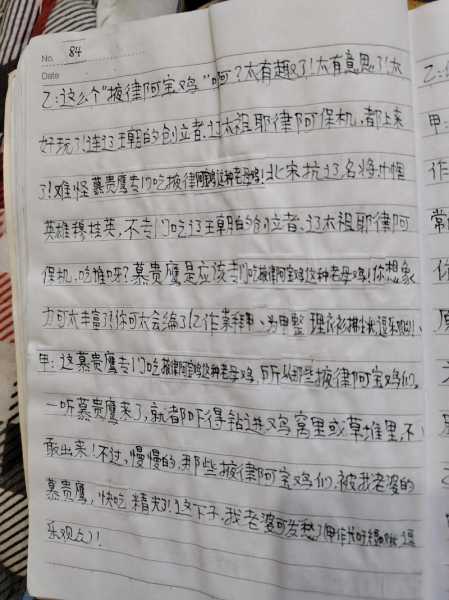 No. 84
Date
乙:这么个"掖律阿宝鸡"啊?太有趣了!太有意思了!太
好玩了!连辽王朝的创立者,辽太祖耶律阿保机,都上来
了!难怪慕贵鹰专门吃掖律阿宝鸡这种老母鸡!北宋抗辽名将巾帼
英雄穆桂英,不专门吃辽王朝的创立者,辽太祖耶律阿
保机,吃谁呀?慕贵鹰是应该专门吃掖律阿宝鸡这种老母鸡!你想象
力可太丰富了!你可太会编了!(乙作
甲、为甲整理衣衫
甲:这慕贵鹰专门吃掖律阿宝鸡这种老母鸡,所以那些掖律阿宝鸡们,
一听慕贵鹰来了,就都吓得钻进鸡窝里或草堆里,不
敢出来!不过,慢慢的,那些掖律阿宝鸡们,被我老婆的
慕贵鹰,快吃精光了!这下子,我老婆可发愁了(甲作
逗
乐观众)!
乙:
甲:
作
常
你